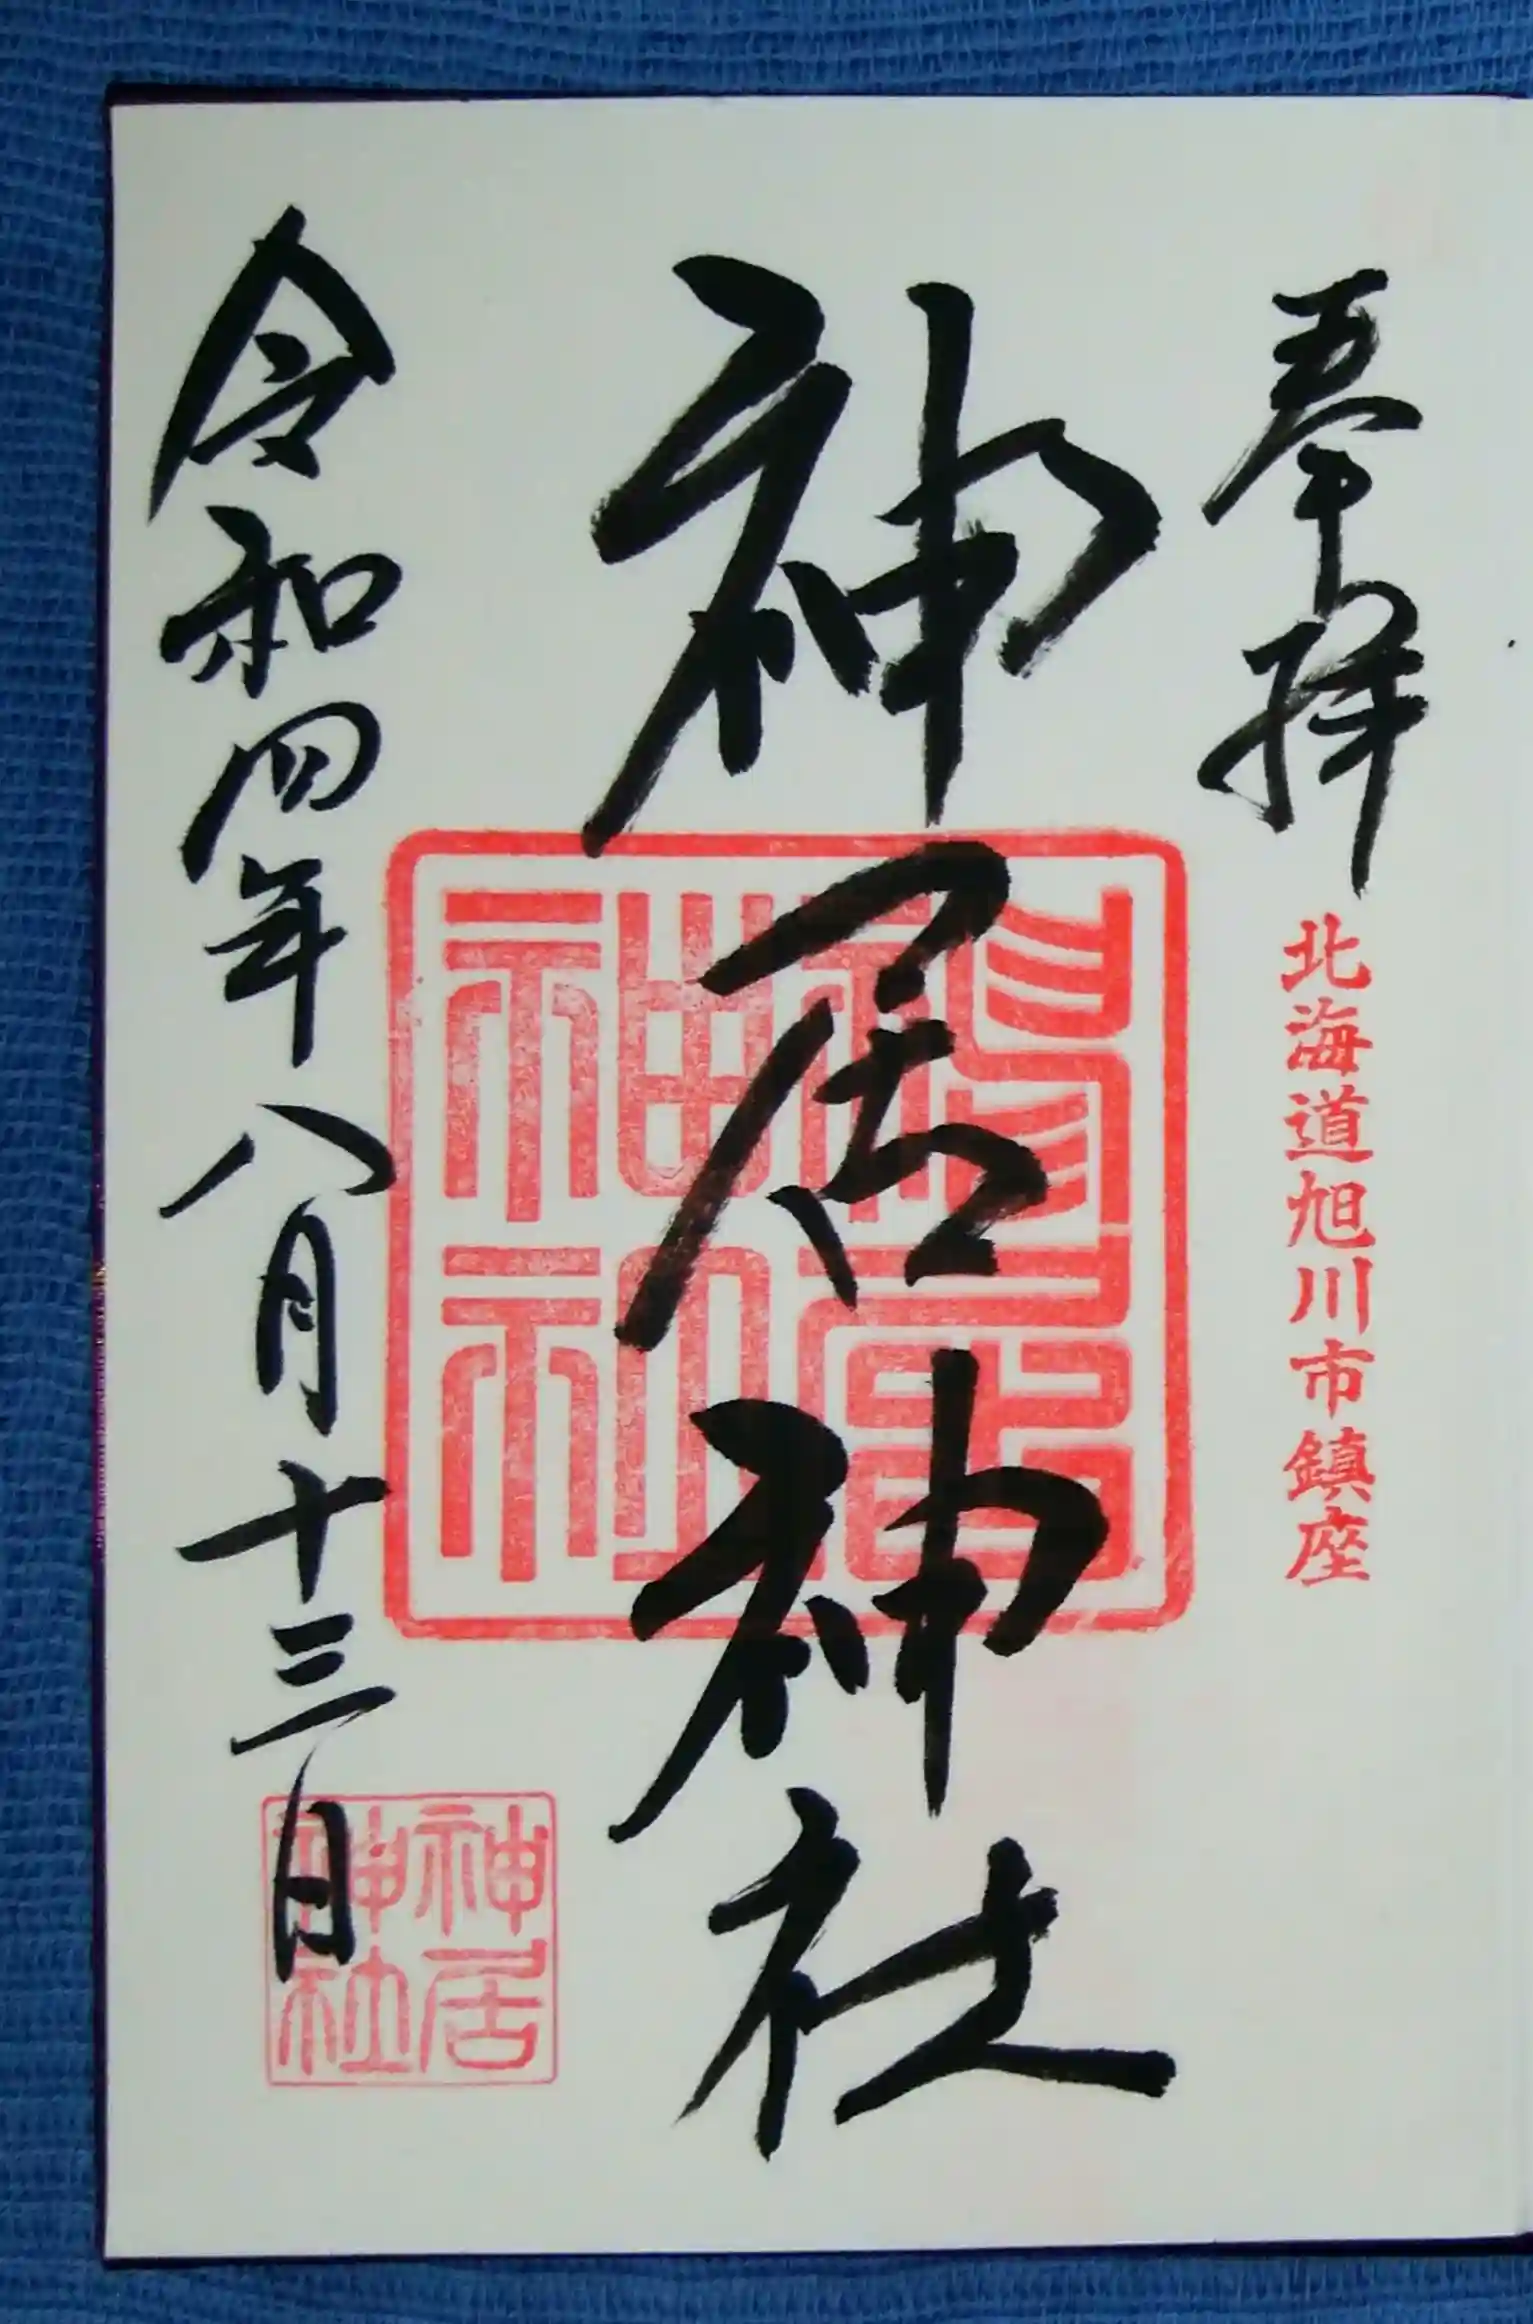 奉拝
北海道旭川市鎮座
神居神社
神居神社
神居神社
令和四年八月十三日